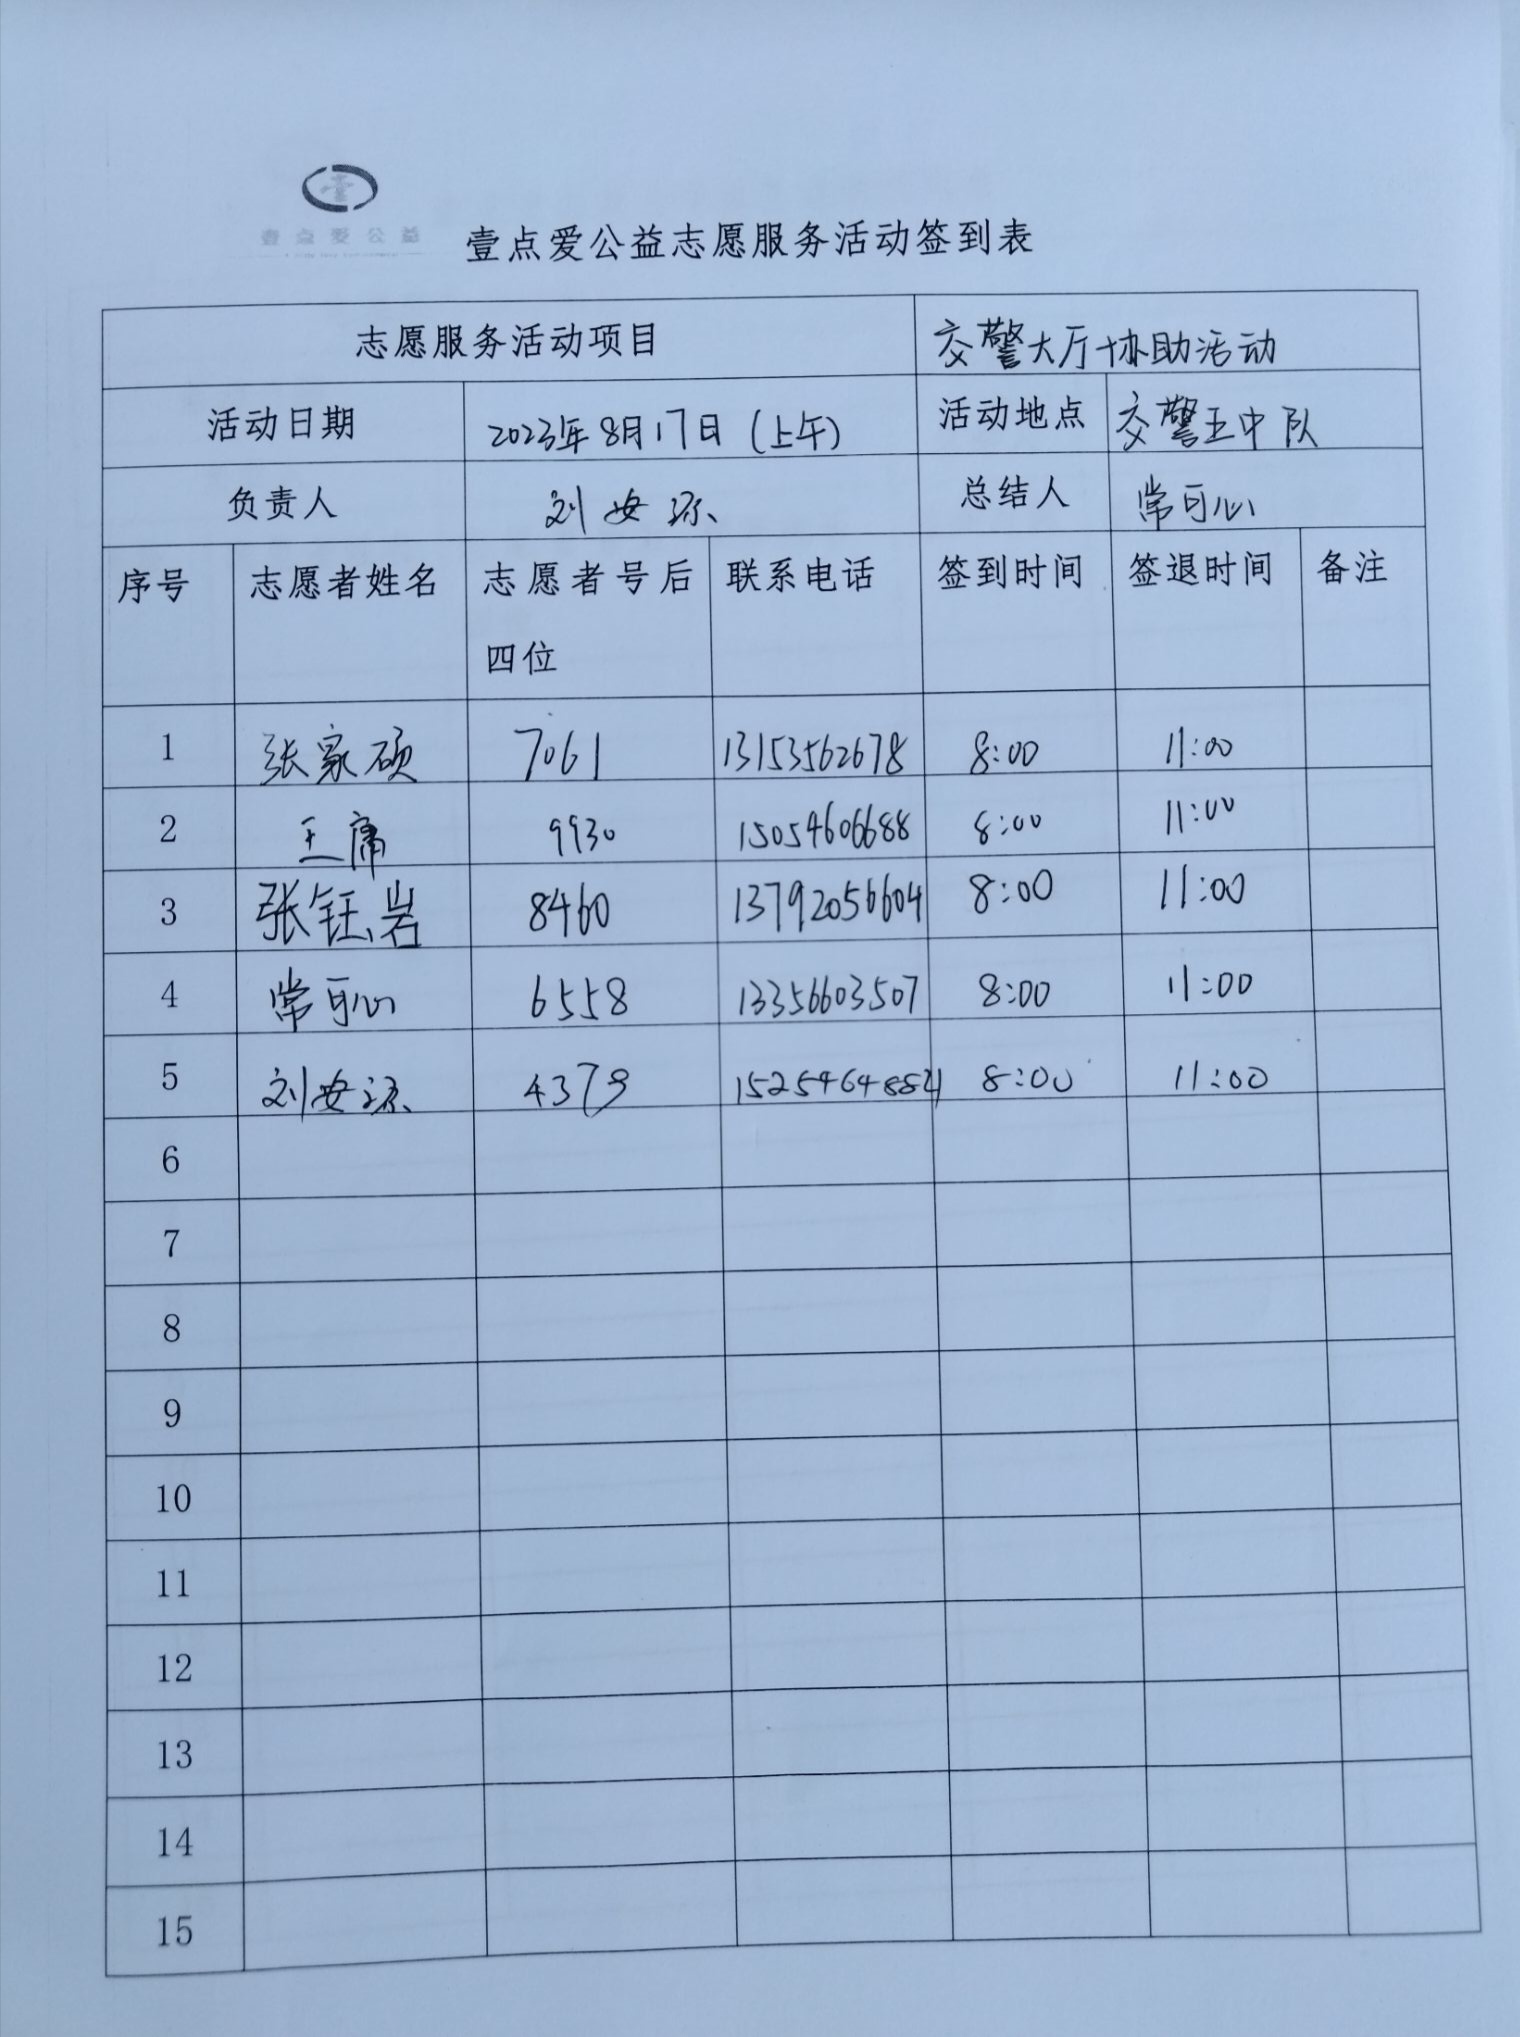 壹点爱公益
壹点爱公益志愿服务活动签到表
志愿服务活动项目 交警大厅协助活动
活动日期 2023年8月17日(上午) 活动地点 交警五中队
负责人 刘安琼 总结人 常可心
序号 志愿者姓名 志愿者号后 联系电话 签到时间 签退时间 备注
四位
1 张家硕 7061 13153562678 8:00 11:00
2 王席 9930 15054606688 8:00 11:00
3 张钰岩 8460 13792056604 8:00 11:00
4 常可心 6558 13356603507 8:00 11:00
5 刘安琼 4379 8:00 11:00
6
7
8
9
10
11
12
13
14
15